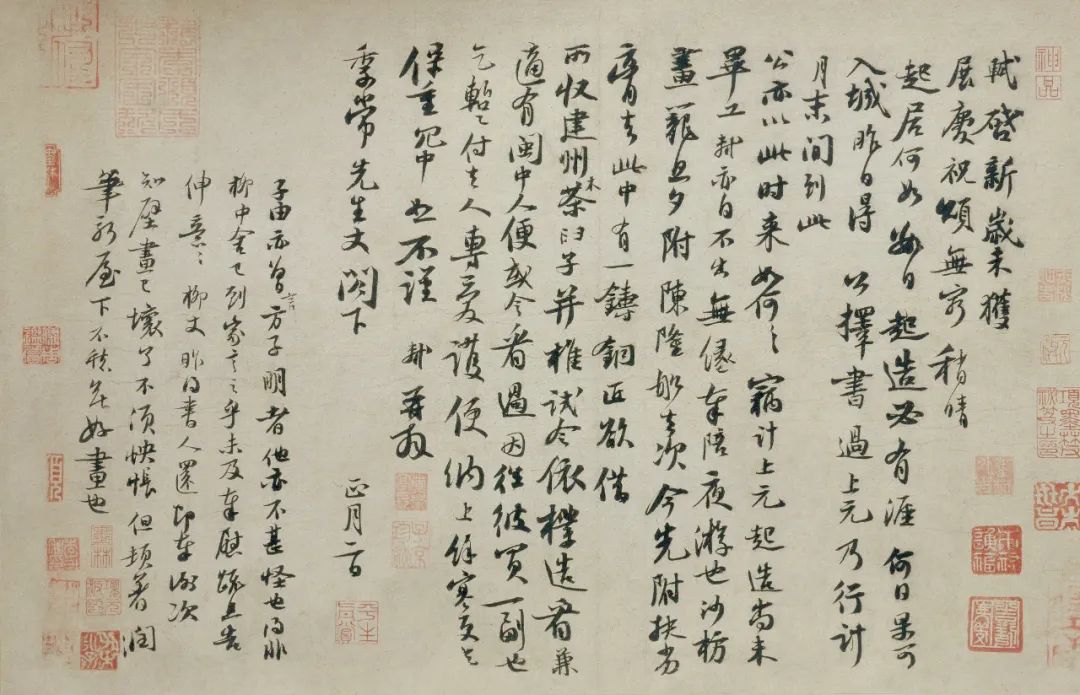 軾啓新歲未獲
展慶祝頌無窮稍晴
起居何如數日起造必有涯何日果可
入城昨日得公擇書過上元乃行計
月末間到此
公亦以此时来如何〻竊計上元起造尚未
畢工軾亦自不出無緣奉陪夜游也沙枋
畫籠旦夕附陳隆船去次今先附扶劣
膏去此中有一鑄銅匠欲借
所收建州木茶臼子并椎試令依樣造看兼
適有閩中人便或令看過因往彼買一副也
乞暫付去人專愛護便納上餘寒更乞
保重冗中恕不謹軾再拜
季常先生丈閤下正月二日
子由亦曾言方子明者他亦不甚怪也得非
柳中舍已到家言之乎未及奉慰疏且告
伸意〻柳丈昨得書人還即奉謝次
知壁畫已壞了不須怏悵但頓著潤
筆新屋下不愁無好畫也
神品
墨林